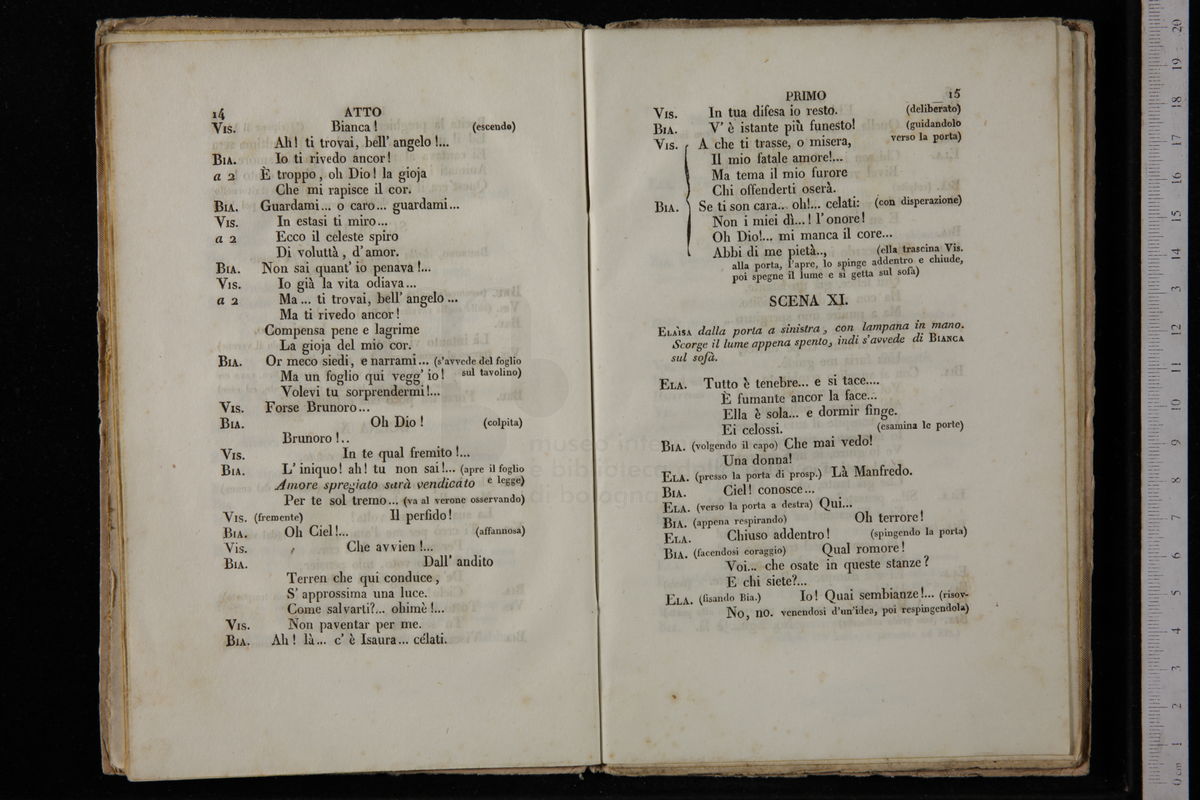 14 ATTO
Vis. Bianca! (escendo)
Ah! ti trovai, bell' angelo!...
Bia. Io ti rivedo ancor!
a 2 È troppo, oh Dio! la gioja
Che mi rapisce il cor.
Bia. Guardami... o caro... guardami...
Vis. In estasi ti miro...
a 2 Ecco il celeste spiro
Di voluttà, d'amor.
Bia. Non sai quant' io penava!...
Vis. Io già la vita odiava...
a 2 Ma... ti trovai, bell' angelo...
Ma ti rivedo ancor!
Compensa pene e lagrime
La gioja del mio cor.
Bia. Or meco siedi, e narrami... (s'avvede del foglio
Ma un foglio qui vegg' io! sul tavolino)
Volevi tu sorprendermi!...
Vis. Forse Brunoro...
Bia. Oh Dio! (colpita)
Brunoro!..
Vis. In te qual fremito!...
Bia. L' iniquo! ah! tu non sai!... (apre il foglio
Amore spregiato sarà vendicato e legge)
Per te sol tremo... (va al verone osservando)
Vis. (fremente) Il perfido!
Bia. Oh Ciel!... (affannosa)
Vis. Che avvien!...
Bia. Dall' andito
Terren che qui conduce,
S' approssima una luce.
Come salvarti?... ohimè!...
Vis. Non paventar per me.
Bia. Ah! là... c' è Isaura... célati.
PRIMO 15
Vis. In tua difesa io resto. (deliberato)
Bia. V' è istante più funesto! (guidandolo
Vis. A che ti trasse, o misera, verso la porta)
Il mio fatale amore!...
Ma tema il mio furore
Chi offenderti oserà.
Bia. Se ti son cara... oh!... celati: (con disperazione)
Non i miei dì...! l' onore!
Oh Dio!... mi manca il core...
Abbi di me pietà.., (ella trascina Vis.
alla porta, l'apre, lo spinge addentro e chiude,
poi spegne il lume e si getta sul sofà)
SCENA XI.
Elaisa dalla porta a sinistra, con lampana in mano.
Scorge il lume appena spento, indi s'avvede di Bianca
sul sofà.
Ela. Tutto è tenebre... e si tace....
È fumante ancor la face...
Ella è sola... e dormir finge.
Ei celossi. (esamina le porte)
Bia. (volgendo il capo) Che mai vedo!
Una donna!
Ela. (presso la porta di prosp.) Là Manfredo.
Bia. Ciel! conosce...
Ela. (verso la porta a destra) Qui...
Bia. (appena respirando) Oh terrore!
Ela. Chiuso addentro! (spingendo la porta)
Bia. (facendosi coraggio) Qual romore!
Voi... che osate in queste stanze?
E chi siete?...
Ela. (fisando Bia.) Io! Quai sembianze!... (risov-
No, no. venendosi d'un'idea, poi respingendola)